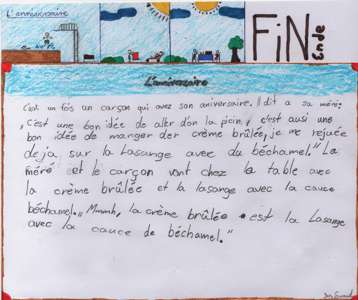 L'anniversaire
FiN
Ende
L'aniversaire
C'est un fois un garçon qui avez son aniversaire. Il dit a sa mère:
„c'est une bon idée de aller dön la picin, c'est ausi une
bon idée de manger der crème brûlée, je me rejuée
deja sur la Lasange avec du béchamel." La
méré et le carçon vont chez la table avec
la crème brûlée et la lasange avec la cauce
béchamel. „Mmmh, la crème brûlée est la Lasange
avec la cauce de béchamel."